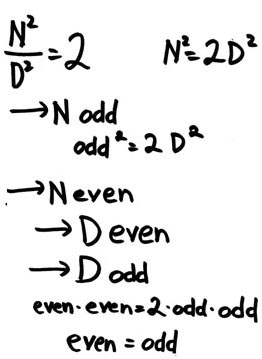 N²/D² = 2 N² = 2D²
→ N odd
odd² = 2 D²
→ N even
→ D even
→ D odd
even·even=2·odd·odd
even = odd